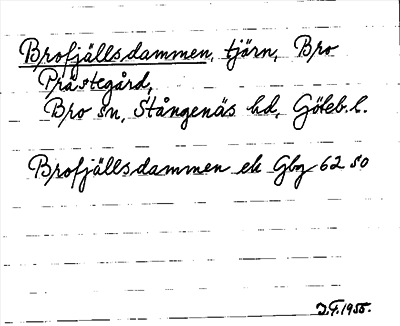 Brofjällsdammen, tjärn, Bro
Prästegård,
Bro sn, Stångenäs hd, Göteb. l.
Brofjällsdammen ek Gbg 62 so
J.F. 1955.